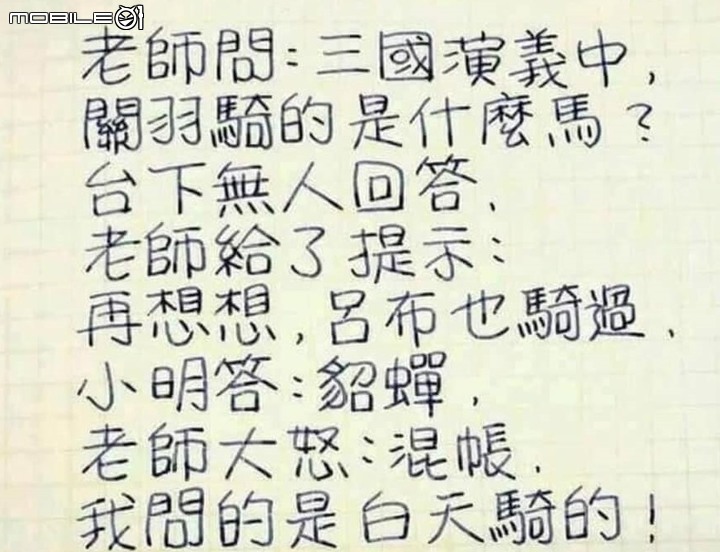 mobile01
老師問:三國演義中,
關羽騎的是什麼馬?
台下無人回答.
老師給了提示:
再想想,呂布也騎過.
小明答:貂蟬.
老師大怒:混帳.
我問的是白天騎的!